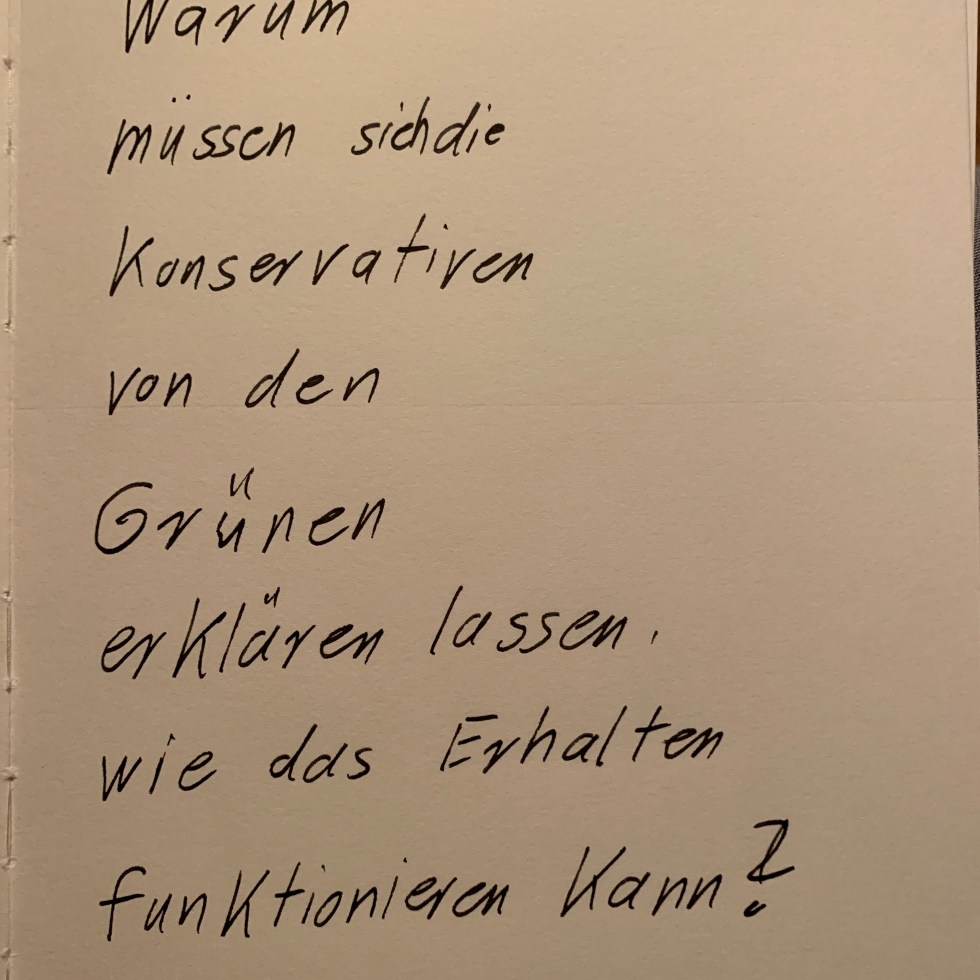 Warum
müssen sich die
Konservativen
von den
Grünen
erklären lassen,
wie das Erhalten
funktionieren kann?